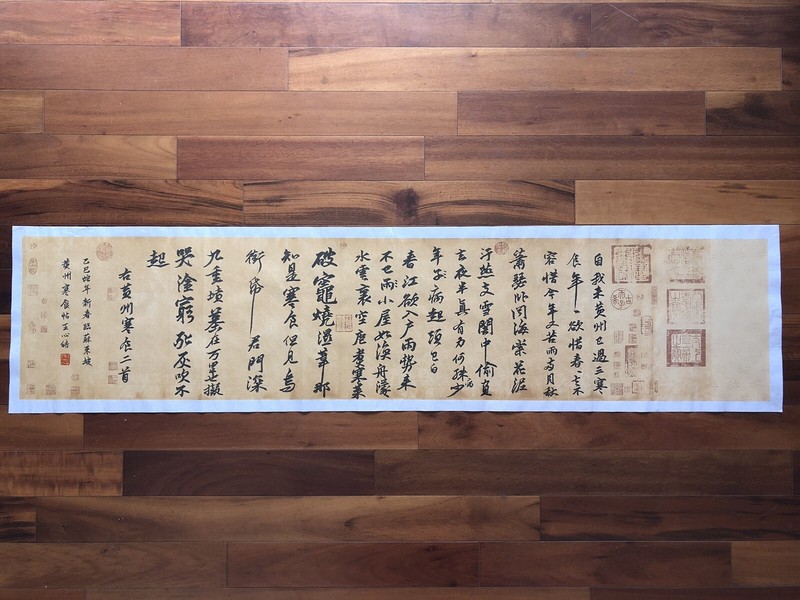 自我來黃州已過三寒
食年〻欲惜春〻去不
容惜今年又苦雨兩月秋
蕭瑟卧聞海棠花泥
汙燕支雪闇中偷負
去夜半真有力何殊病少
年子病起頭已白
春江欲入戶雨勢來
不已雨小屋如漁舟濛〻
水雲裏空庖煮寒菜
破竈燒濕葦那
知是寒食但見烏
銜帋君門深
九重墳墓在万里也擬
哭塗窮死灰吹不
起
右黃州寒食二首
乙巳蛇年新春臨蘇東坡
黃州寒食帖王心